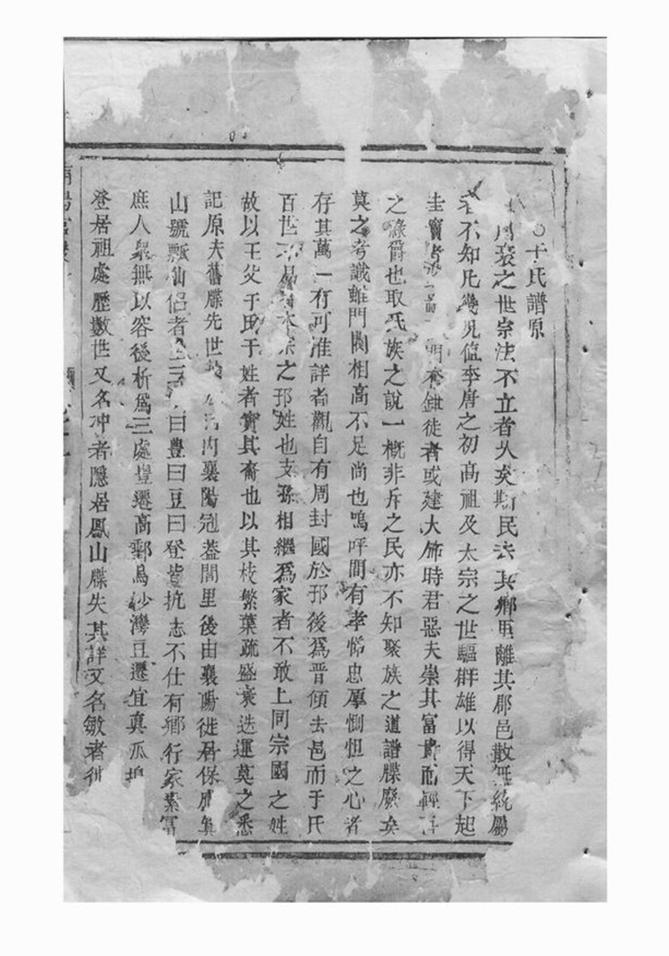 于氏譜原
周衰之世宗法不立者久矣斯民去其鄉里離其郡邑散無統屬
不知凡幾見值李唐之初高祖及太宗之世驅群雄以得天下起
圭竇者 徒者或建大 時君惡夫崇其富貴而輕
之祿爵也取氏族之說一概非斥之民亦不知聚族之道譜牒廢矣
莫之考識雖門閥相高不足尚也嗚呼間有孝悌忠厚惻怛之心者
存其萬一有可准詳者觀自有周封國於邘後為晉傾去邑而于氏
百世不易 木宗之邘姓也支孫相繼為家者不敢上同宗國之姓
故以王父于氏于姓者實其裔也以其枝繁葉疏盛衰迭運莫之悉
記原夫舊牒先世 河內襄陽冠蓋閭里後由襄陽徙居保 真
山號瓢仙侶者生三 曰豊曰豆曰登皆抗志不仕有鄉行家業富
庶人眾無以容後析為三處豊遷高郵烏沙灣豆遷宜真瓜埠
登居祖處歷數世又名冲者隱居鳳山牒失其詳又名敏者徙